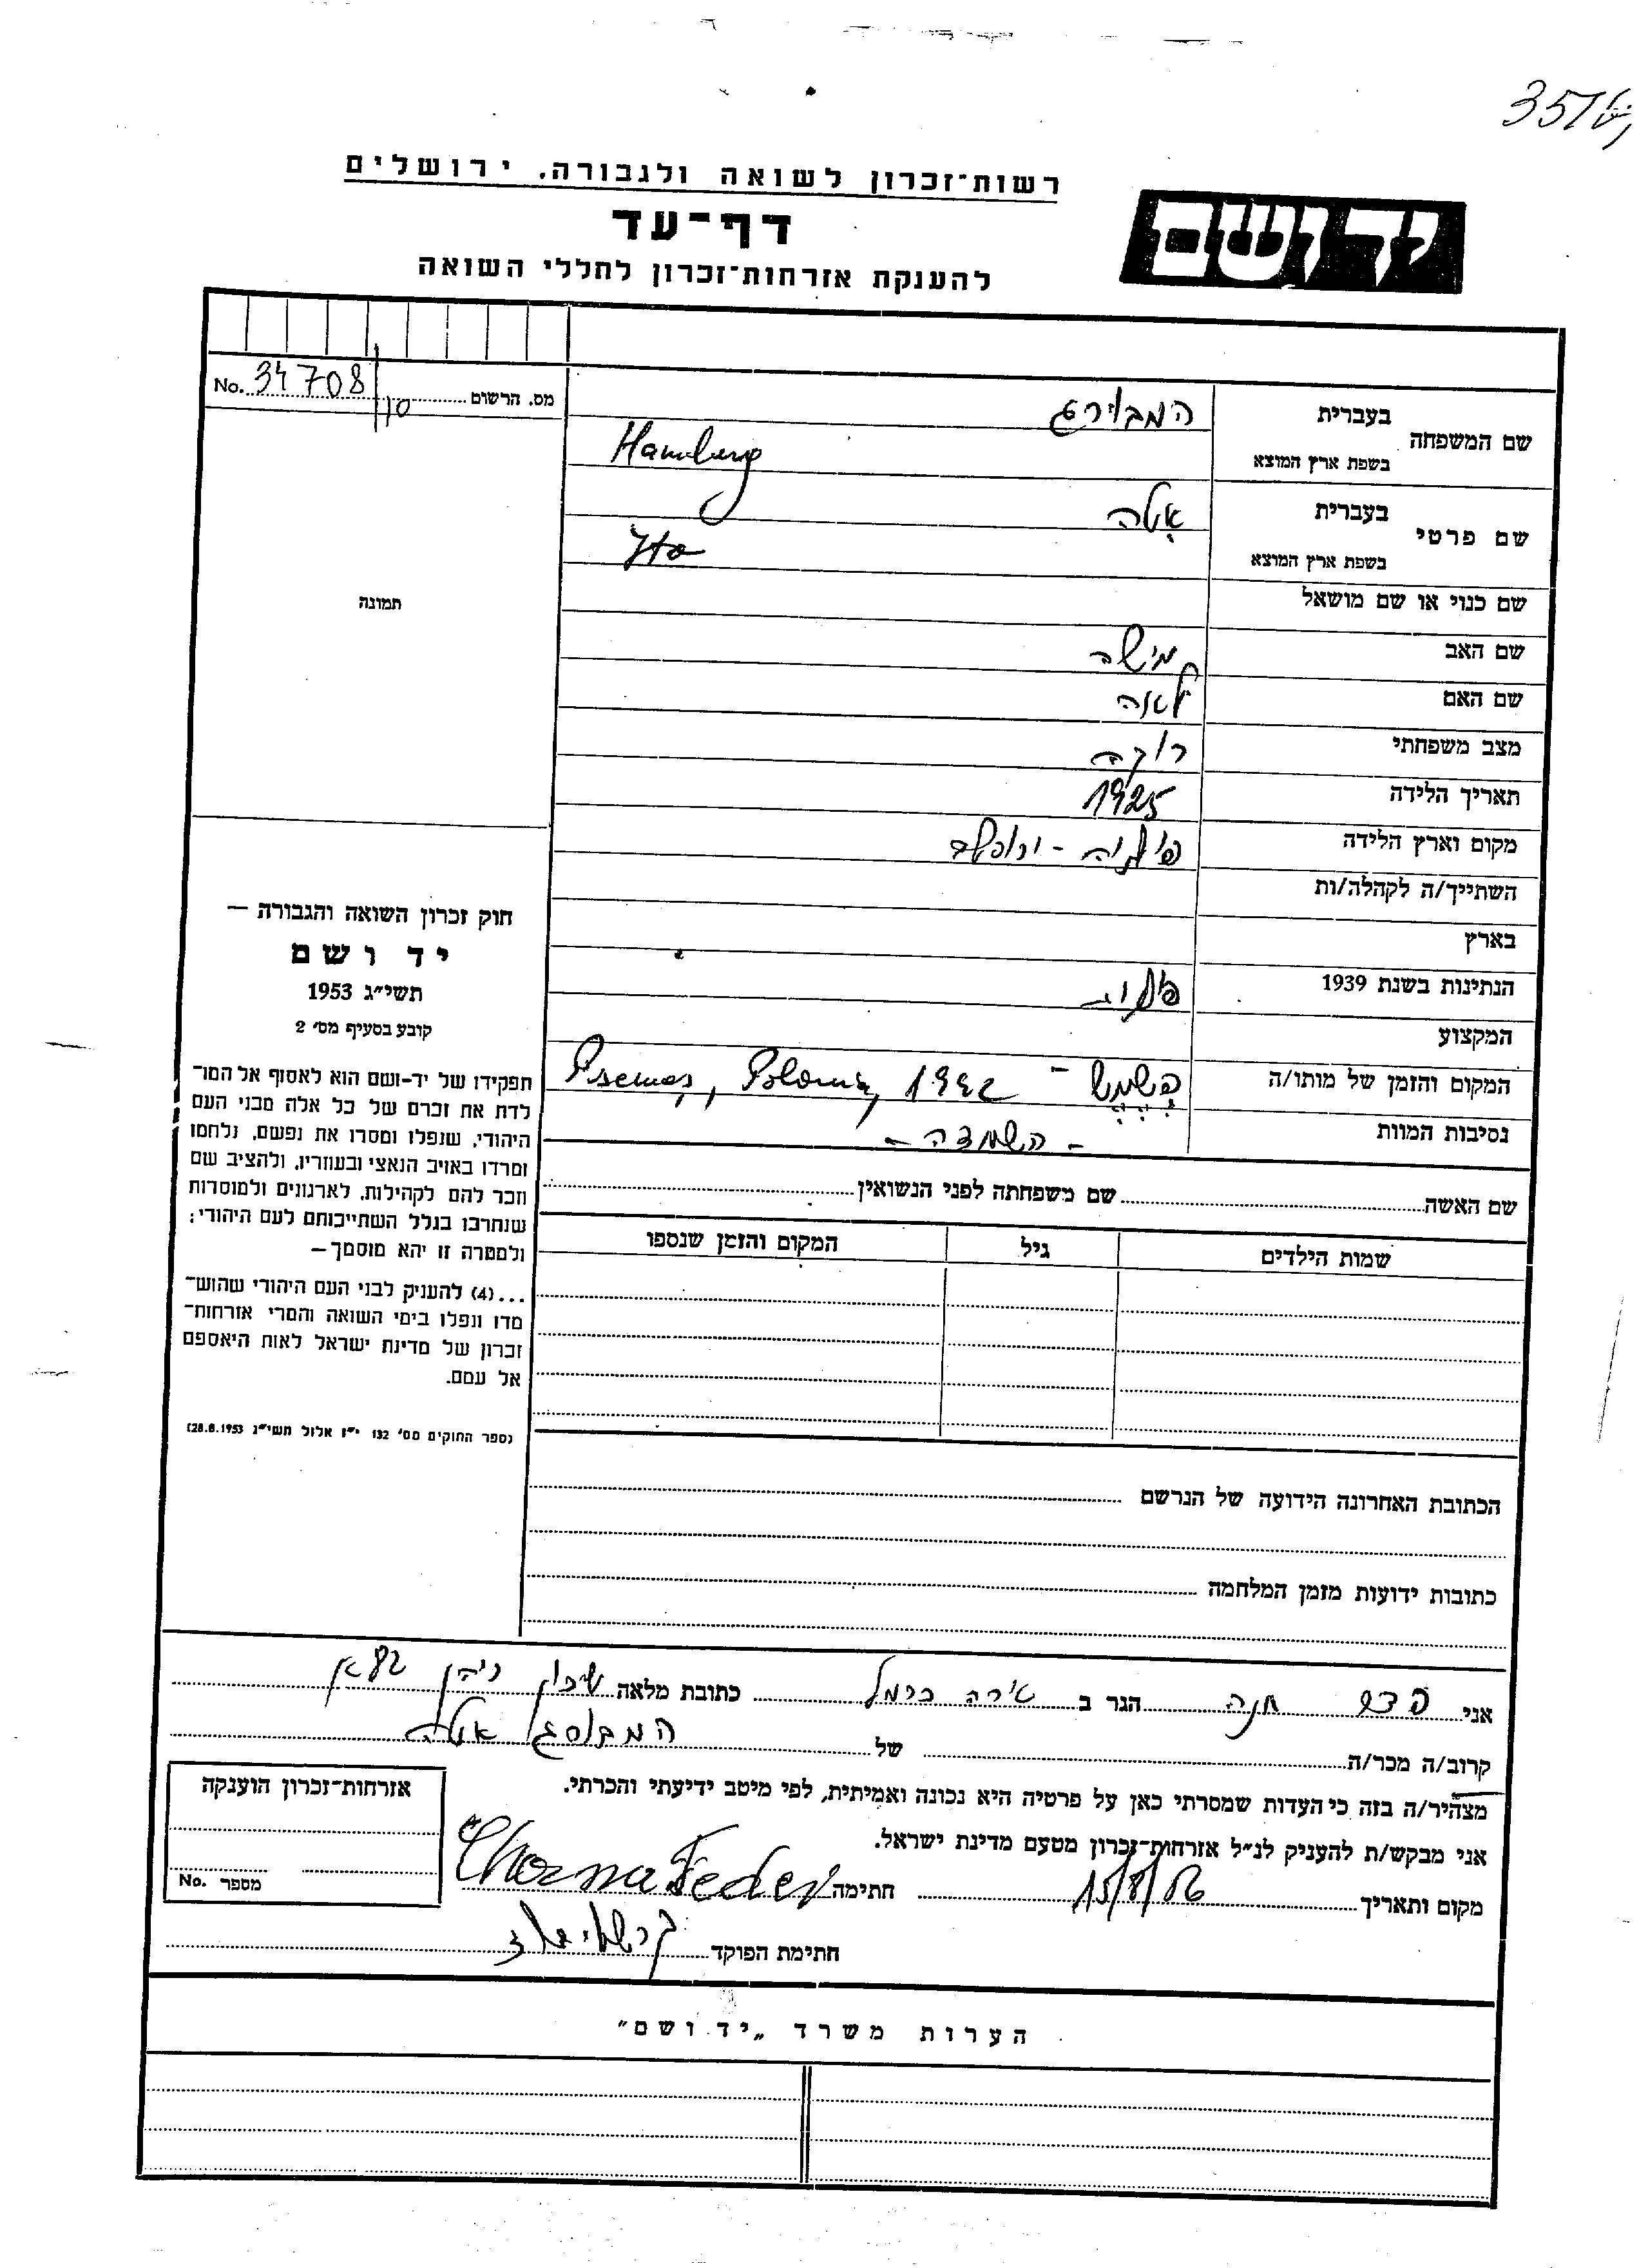 רשות־זכרון לשואה ולגבורה, ירושלים
יד ושם
דף־עד
להענקת אזרחות־זכרון לחללי השואה
No. 34708/10 מס. הרשום
שם המשפחה בעברית המבורג
בשפת ארץ המוצא Hamburg
שם פרטי בעברית
בשפת ארץ המוצא
שם כנוי או שם מושאל
תמונה
שם האב
שם האם לאה
מצב משפחתי רוקה
תאריך הלידה 1925
מקום וארץ הלידה פולניה -
השתייך/ה לקהלה/ות
בארץ
הנתינות בשנת 1939
המקצוע
המקום והזמן של מותו/ה 1942
נסיבות המוות - השמדה -
שם האשה שם משפחתה לפני הנשואין
שמות הילדים גיל המקום והזמן שנספו
חוק זכרון השואה והגבורה —
יד ושם
תשי״ג 1953
קובע בסעיף מס׳ 2
תפקידו של יד-ושם הוא לאסוף אל המו־
לדת את זכרם של כל אלה מבני העם
היהודי, שנפלו ומסרו את נפשם, נלחמו
ומרדו באויב הנאצי ובעוזריו, ולהציב שם
וזכר להם לקהילות, לארגונים ולמוסדות
שנחרבו בגלל השתייכותם לעם היהודי;
ולמטרה זו יהא מוסמך—
...(4) להעניק לבני העם היהודי שהוש־
מדו ונפלו בימי השואה והמרי אזרחות־
זכרון של מדינת ישראל לאות היאספם
אל עמם.
(ספר החוקים מס׳ 132 י״ז אלול תשי״ג 28.8.1953)
הכתובת האחרונה הידועה של הנרשם
כתובות ידועות מזמן המלחמה
אני פדר חנה הגר ב טירה כרמל כתובת מלאה שיכון
קרוב/ה מכר/ה של
מצהיר/ה בזה כי העדות שמסרתי כאן על פרטיה היא נכונה ואמיתית, לפי מיטב ידיעתי והכרתי.
אני מבקש/ת להעניק לנ״ל אזרחות־זכרון מטעם מדינת ישראל.
מקום ותאריך 15/8/56 חתימה Feder
חתימת הפוקד
אזרחות־זכרון הוענקה
מספר No.
הערות משרד „יד ושם"